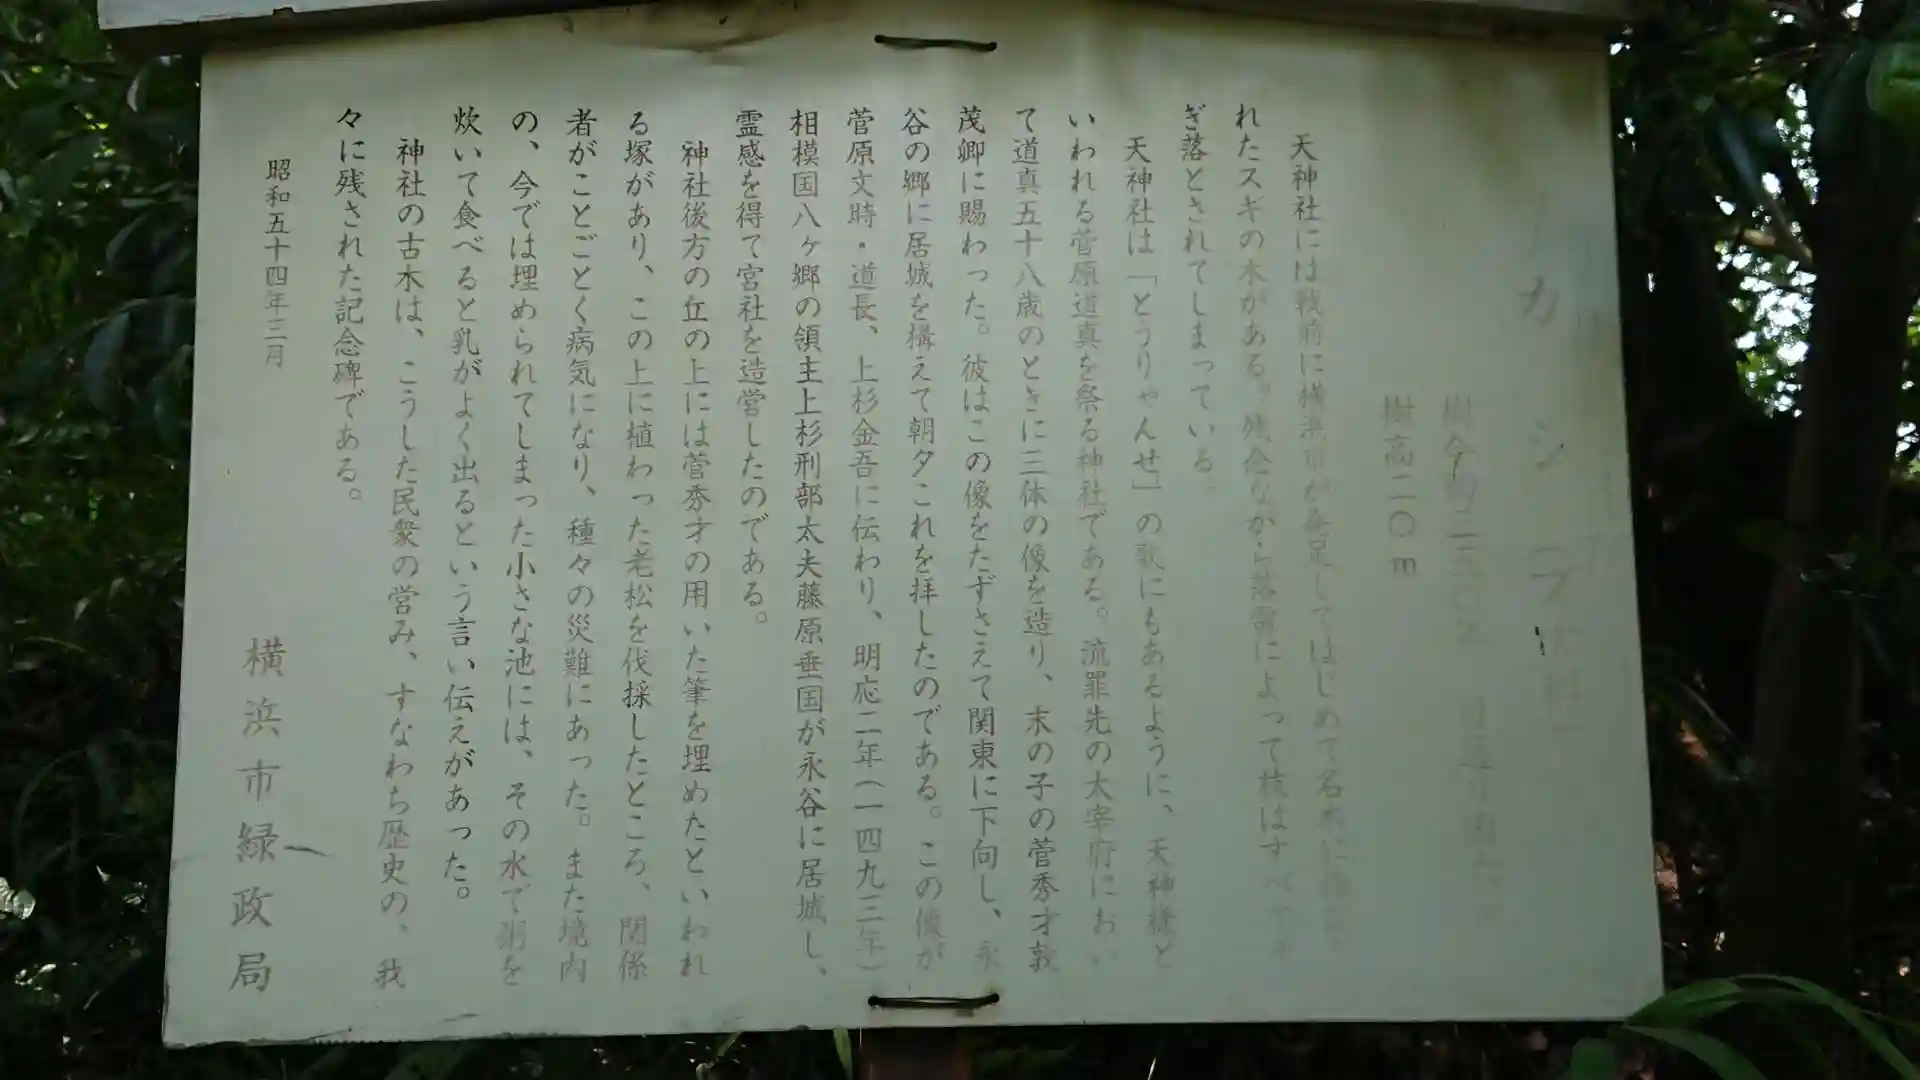 アカシ(ブナ科)
樹令約三五〇年 目通り周
樹高二〇m
天神社には戦前に横浜市が発足してはじめて名木に指定さ
れたスギの木がある。残念ながら落雷によって枝はすべてそ
ぎ落とされてしまっている。
天神社は「とうりゃんせ」の歌にもあるように、天神様と
いわれる菅原道真を祭る神社である。流罪先の太宰府におい
て道真五十八歳のときに三体の像を造り、末の子の菅秀才敦
茂卿に賜わった。彼はこの像をたずさえて関東に下向し、永
谷の郷に居城を構えて朝夕これを拝したのである。この像が
菅原文時・道長、上杉金吾に伝わり、明応二年(一四九三年)
相模国八ヶ郷の領主上杉刑部太夫藤原乗国が永谷に居城し、
霊感を得て宮社を造営したのである。
神社後方の丘の上には菅秀才の用いた筆を埋めたといわれ
る塚があり、この上に植わった老松を伐採したところ、関係
者がことごとく病気になり、種々の災難にあった。また境内
の、今では埋められてしまった小さな池には、その水で粥を
炊いて食べると乳がよく出るという言い伝えがあった。
神社の古木は、こうした民衆の営み、すなわち歴史の、我
々に残された記念碑である。
昭和五十四年三月
横浜市緑政局